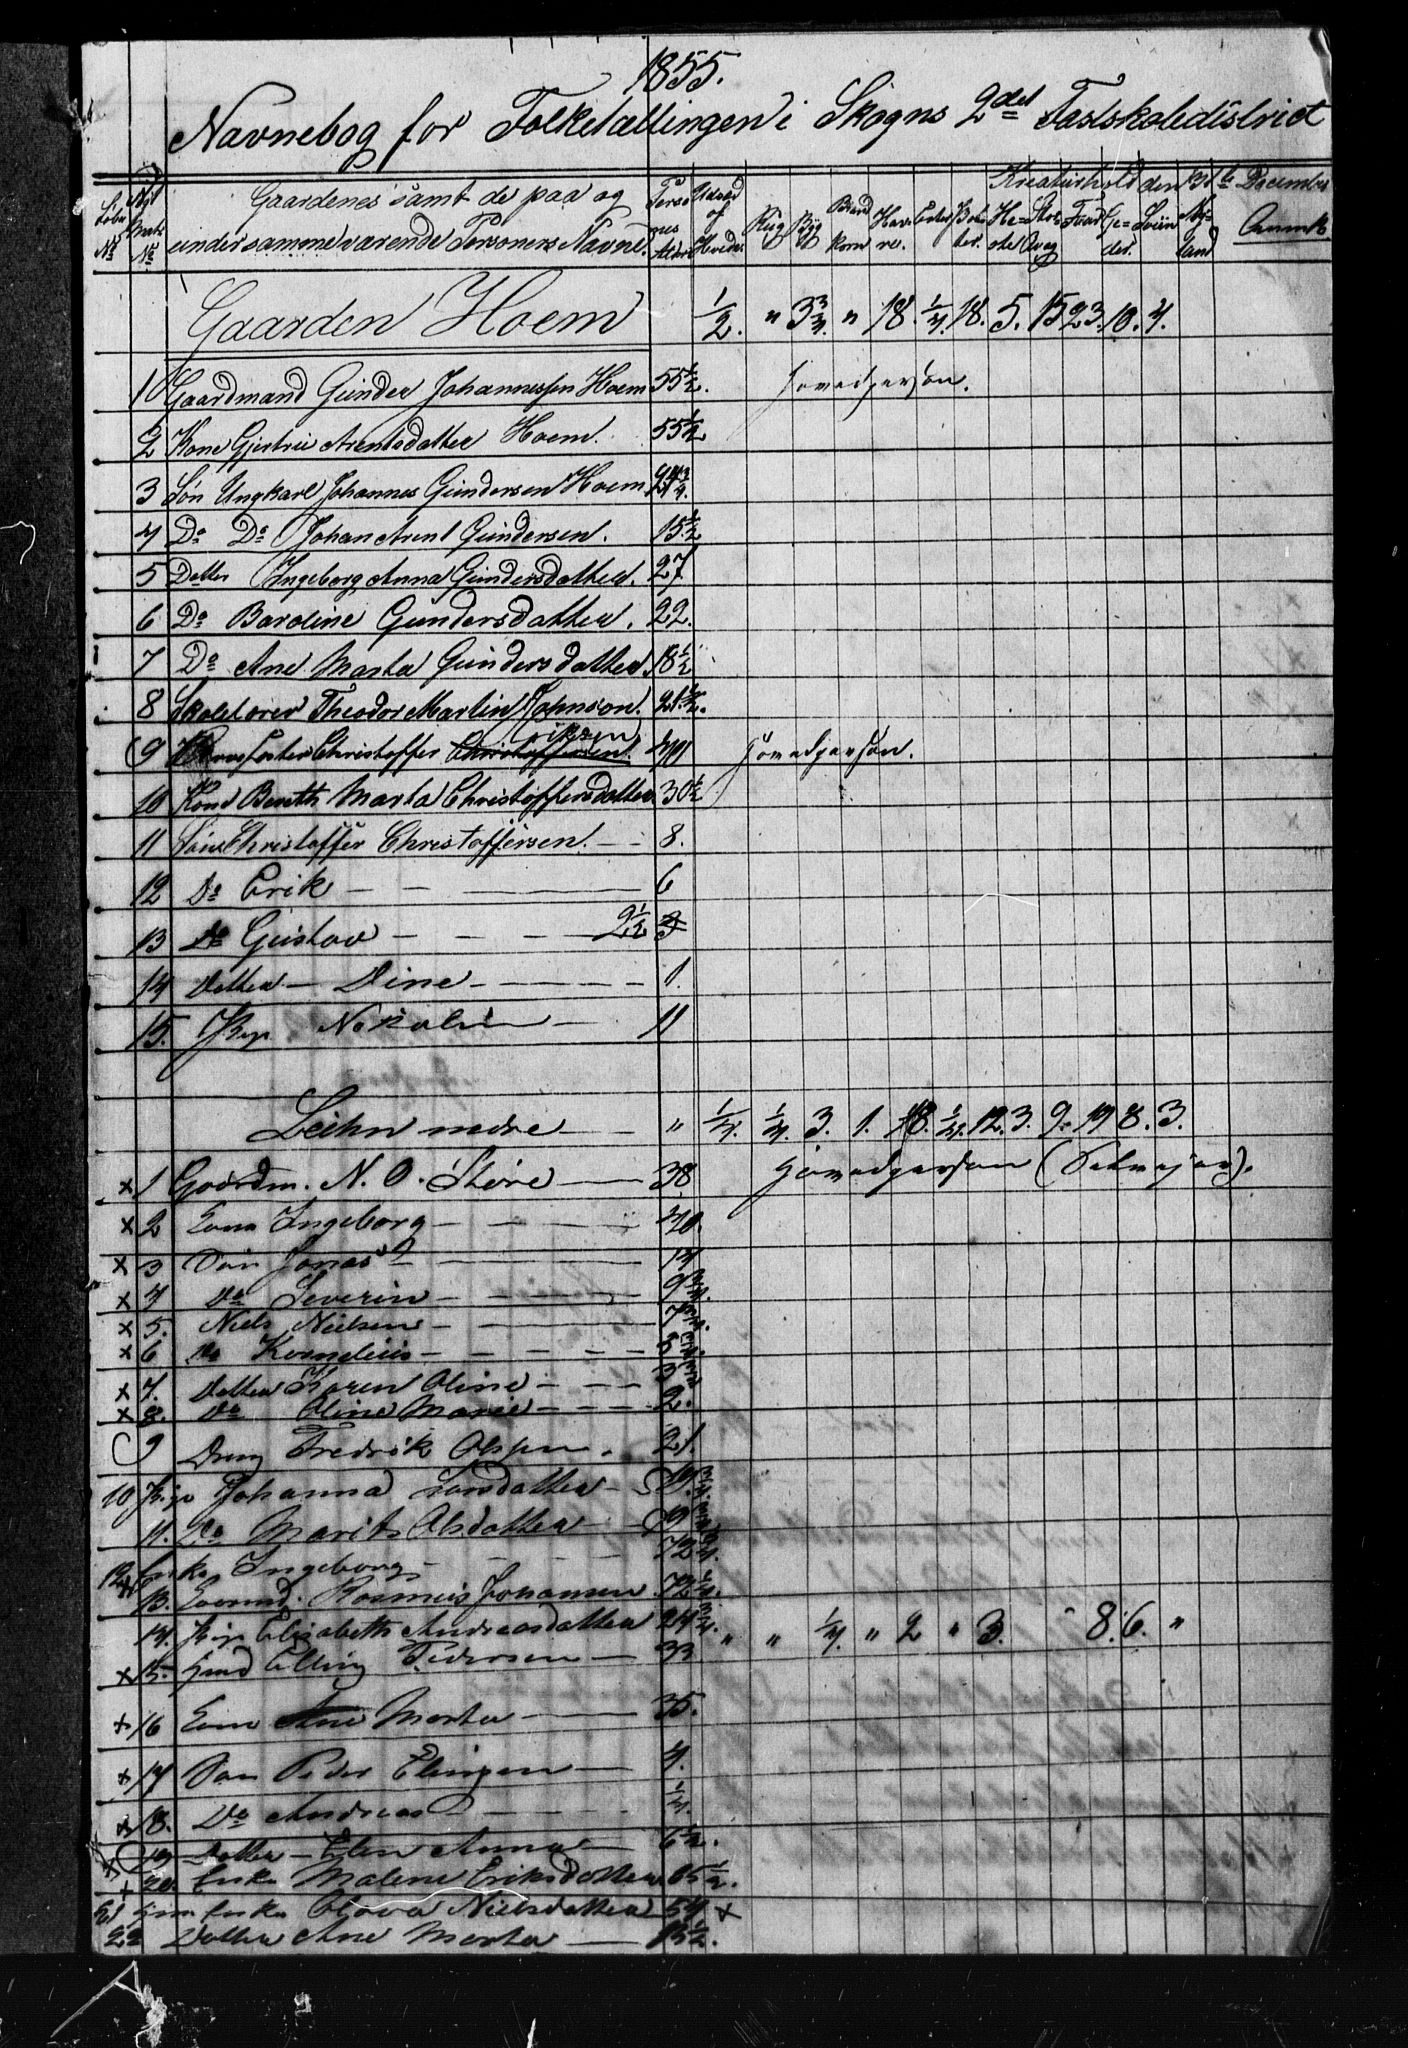 1855.
Navnebog for Folketællingen i Skogns 2det Fastskoledistrict
Kreaturhold den 31te December
Løbe No Matr No Gaardenes samt de paa og Perso nes Alder Udsæd af Hvede Rug Byg Bland korn Hav re. Erter Pote ter. He= ste Stort Qvæg Faar Gje= der. Sviin Anmk
under samme værende Personers Navne.
Gaarden Hoem 1/2. " 3 3/4. " 18. 1/4. 18. 5. 15 23. 10. 4.
1 Gaardmand Gunder Johannessen Hoem 55 1/2. Hovedperson.
2 Kone Gjertrue Arentsdatter Hoem. 55 1/2
3 Søn Ungkarl Johannes Gundersen Hoem 24 3/4.
4 Do Do Johan Arent Gundersen. 15 1/2
5 Datter Ingeborg Anna Gundersdatter. 27
6 Do Baroline Gundersdatter. 22.
7 Do Ane Marta Gundersdatter 18 1/2
8 Skolelærer Theodor Martin Johnson. 21 1/2.
Eriksen
9 Christoffer Christoffersen. 40 Hovedperson.
10 Kone Bereth Marta Christoffersdatter 30 1/2
11 Søn Christoffer Christoffersen. — 8.
12 Do Erik — — — 6
13 Do Gustav — — — 2 1/2 3
14 Datter — Dine — — — 1.
15. Pige Nikoline — 11
Leihn nedre — " 1/4. 1/4. 3. 1. 18. 1/4. 12. 3. 9. 19 8. 3.
x 1 Gaardm. N. O. Støre — 38 Hovedperson (Selvejer).
x 2 Kone Ingeborg — — — 40.
x 3 Søn Jonas — 14
x 4 Do Severin — — 9 3/4.
x 5. Niels Nielsen — — 7
x 6 Do Kornelius — — — 5
x 7. Datter Karen Oline — — — 3
x 8. Do Oline Marie — — — 2.
9 Dreng Fredrik Olsen. 21.
10 Pige Johanna Larsdatter — 19. 3/4.
11. Do Marit Olsdatter — 19
12 Enke Ingeborg — — — 72 3/4.
13. Rasmus Johansen 72
14. Pige Elisabeth Andreasdatter 24 3/4. " " 1/4. " 2 " 3. 8. 6. "
x 15. Elling Pedersen — 33
x 16 Kone Ane Marta — 35.
x 17 Søn Peder Elingsen — 4.
x 18. Do Andreas — — 1/4.
19 Datter — Elen Anna — 6 1/2.
x 20. Enke Malene Eriksdatter 65 1/2.
21 Enke Olava Nielsdatter 54 x
22 Datter Ane Marta — 13 1/2.